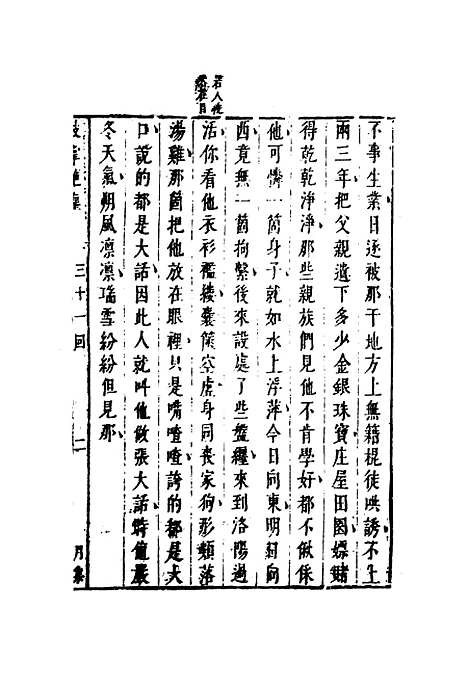 若人使
落在目
不事生業日逐被那干地方上無籍棍徒哄誘不上
兩三年把父親遺下多少金銀珠寶庄屋田園嫖賭
得乾乾淨淨那些親族們見他不肯學好都不偢倸
他可憐一箇身子就如水上浮萍今日向東明日向
西竟無一箇拘繫後來設處了些盤纏來到洛陽過
活你看他衣衫襤褸囊篋空虛身同喪家狗形類落
湯雞那箇把他放在眼裡只是嘴喳喳誇的都是大
口說的都是大話因此人就叫他做張大話時值嚴
冬天氣朔風凛凛瑞雪紛紛但見那
三十一回
二
月集